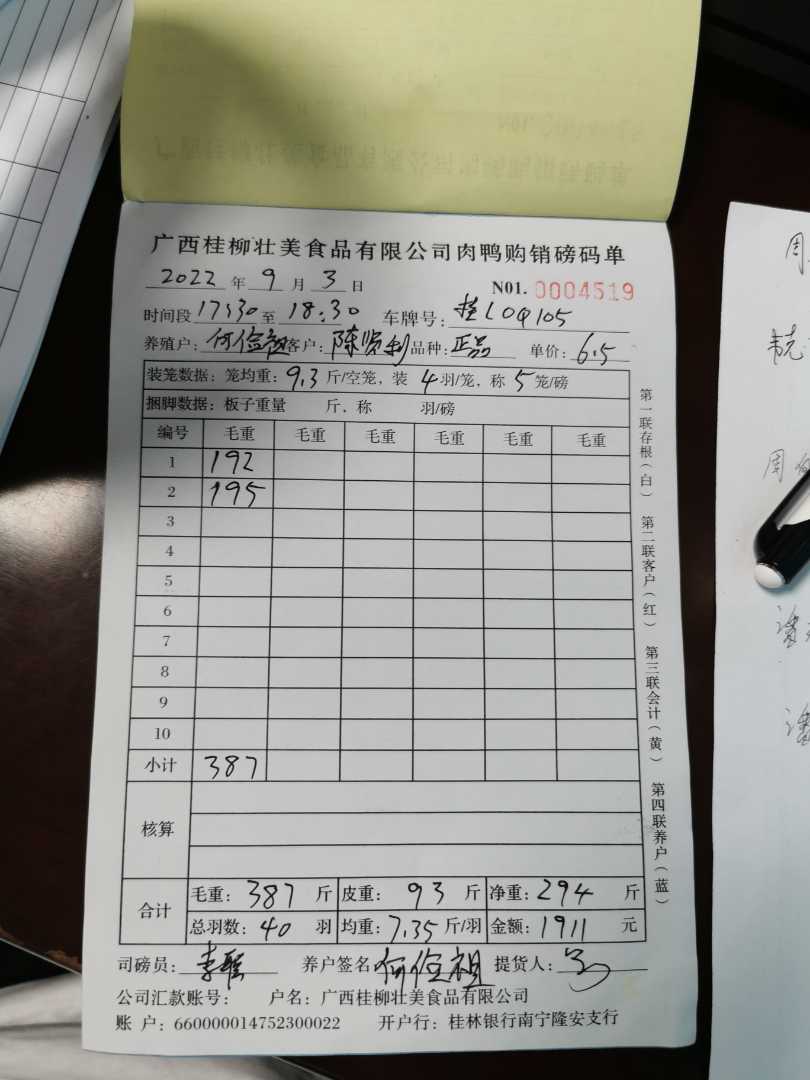 广西桂柳壮美食品有限公司肉鸭购销磅码单
2022 年 9 月 3 日 N01. 0004519
时间段 17:30 至 18:30 车牌号: 桂L0Q105
养殖户: 何俭祖 客户: 陈贤利 品种: 正品 单价: 6.5
装笼数据: 笼均重: 9.3 斤/空笼, 装 4 羽/笼, 称 5 笼/磅
捆脚数据: 板子重量 斤, 称 羽/磅
编号 毛重 毛重 毛重 毛重 毛重 毛重
1 192
2 195
3
4
5
6
7
8
9
10
小计 387
核算
合计 毛重: 387 斤 皮重: 93 斤 净重: 294 斤
总羽数: 40 羽 均重: 7.35 斤/羽 金额: 1911 元
司磅员: 李 养户签名 何俭祖 提货人:
公司汇款账号: 户名: 广西桂柳壮美食品有限公司
账 户: 660000014752300022 开户行: 桂林银行南宁隆安支行
第一联存根(白) 第二联客户(红) 第三联会计(黄) 第四联养户(蓝)
周
韦
周